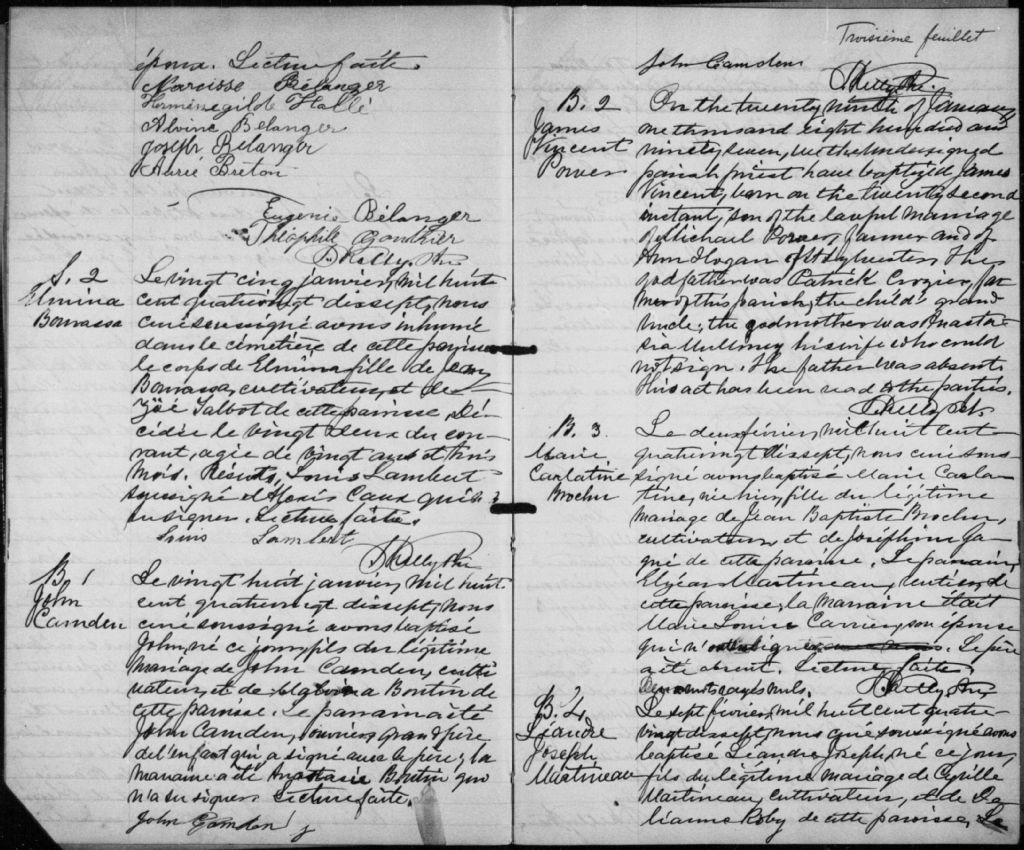 époux. Lecture faite.
Narcisse Bélanger
Herménegilde Hallé
Alvine Bélanger
Joseph Bélanger
Aurié Breton
Eugenie Bélanger
Théophile Gonthier
Kelly Ptre
S. 2
Elmina
Bourassa
Le vingt cinq janvier, mil huit
cent quatrevingt dixsept, nous
curé soussigné avons inhumé
dans le cimetière de cette paroisse
le corps de Elmina fille de Jean
Bourassa, cultivateur, et de
Zöé Talbot de cette paroisse dé-
cédée le vingt deux du cou-
rant, agée de vingt ans et trois
mois. Présents, Louis Lambert
soussigné et Alexis Caux qui n'a
su signer. Lecture faite.
Louis Lambert
Kelly Ptre
B. 1
John
Camden
Le vingt huit janvier, mil huit-
cent quatrevingt dixsept, nous
curé soussigné avons baptisé
John, né ce jour, fils du légitime
mariage de John Camden, culti-
vateur, et de Boutin de
cette paroisse. Le parrain a été
John Camden, grand père
de l'enfant qui a signé avec le père; la
marraine a été Anastasie Boutin qui
n'a su signer. Lecture faite.
John Camden
Troisième feuillet
John Camden
Kelly Ptre.
B. 2
James
Vincent
Power
On the twenty ninth of January
one thousand eight hundred and
ninety seven, we the undersigned
parish priest have baptized James
Vincent, born on the twenty second
instant, son of the lawful marriage
of Michael Power, farmer and of
Ann Hogan of St Sylvester. The
godfather was Patrick Crozier, far-
mer of this parish, the child's grand
uncle; the godmother was Anasta-
sia his wife who could
not sign. The father was absent.
This act has been read to the parties.
Kelly Ptr.
B. 3.
Marie
Caslatine
Brochu
Le deux février, mil huit cent
quatrevingt dixsept, nous curé sous-
signé avons baptisé Marie Casla-
tine, née hier, fille du légitime
mariage de Jean Baptiste Brochu,
cultivateur, et de Joséphine Ja-
qué de cette paroisse. Le parrain,
Elzéar Martineau, rentier, de
cette paroisse, la marraine était
Marie Louise Carrier, son épouse
qui n'ont signé. Le père
a été absent. Lecture faite.
Deux mots rayés nuls. Kelly Ptre
B. 4
Léandre
Joseph
Martineau
Le sept février, mil huit cent quatre-
vingt dixsept, nous curé soussigné avons
baptisé Léandre Joseph, né ce jour,
fils du légitime mariage de Cyrille
Martineau, cultivateur, et de De-
lianne Roby de cette paroisse. Le